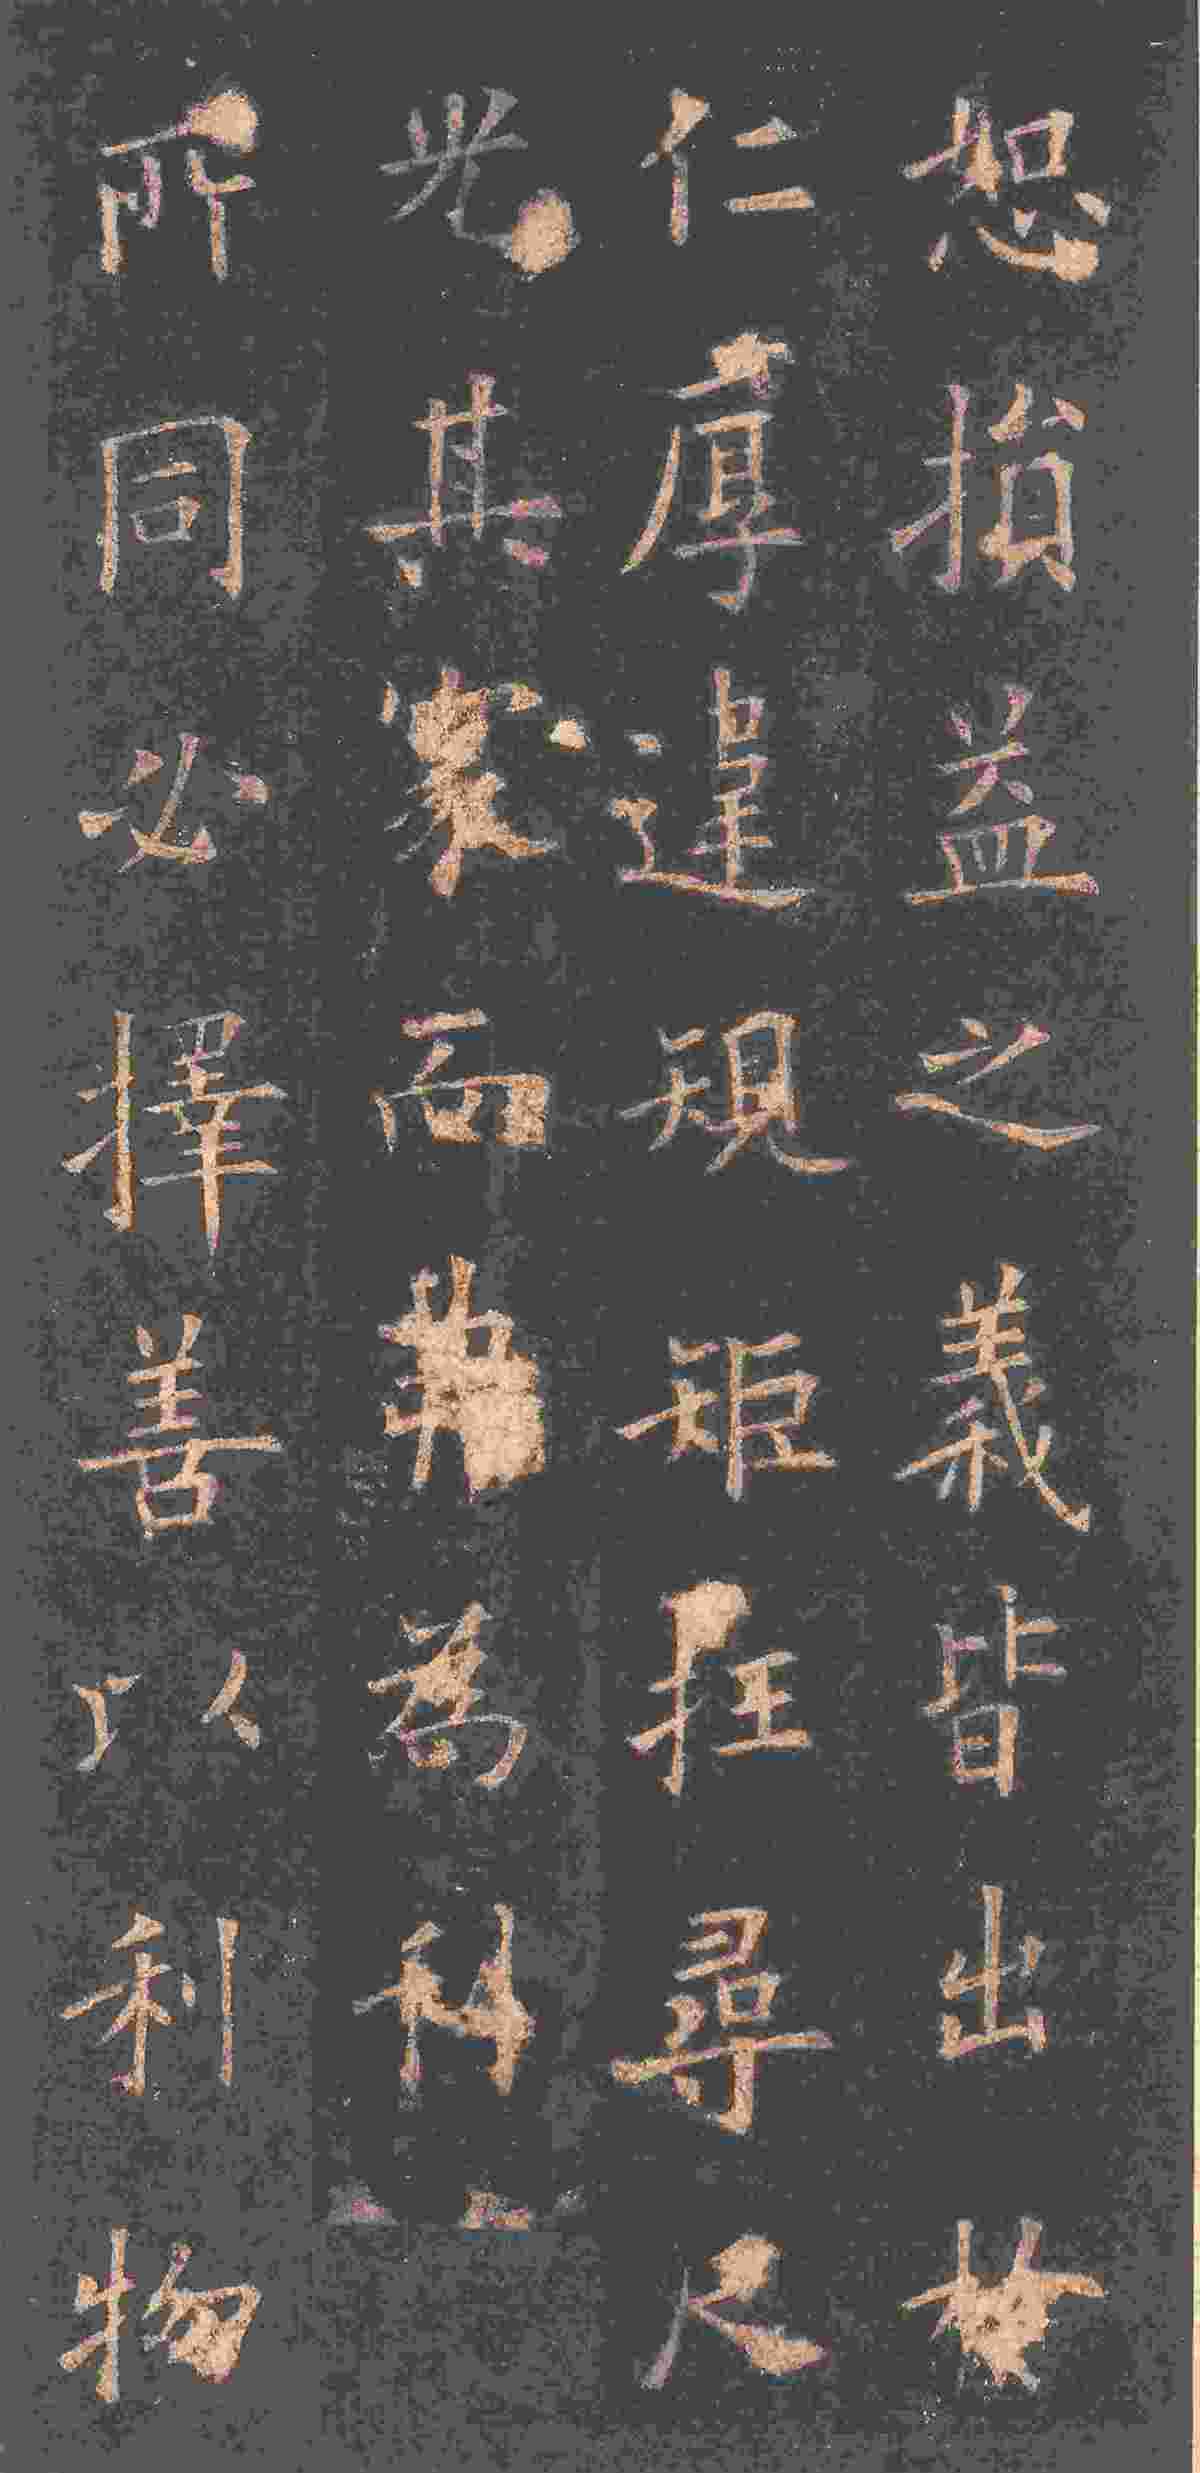 恕損益之義皆出
仁厚違規矩枉尋尺
光其而為
所同必擇善以利物